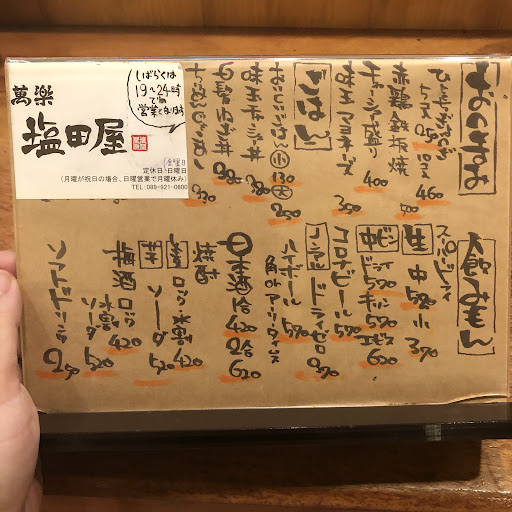 おつまみ
赤鶏鉄板焼
460
500
チャーシュー盛り
400
味玉マヨネーズ
300
ごはん
おいしいごはん 小 130 大 250
味玉チャーシュー丼
380
白髪ねぎ丼
330
しばらくは
19〜24時
営業になります
萬楽
塩田屋
定休日:日曜日
(月曜が祝日の場合、日曜営業で月曜休み)
TEL: 089-921-0600
飲みもん
スーパードライ
生 中 570 小 370
中ビン
ドライ 570
キリン 570
エビス 620
コロナビール 570
ノンアル ドライゼロ 370
ハイボール 570
日本酒 1合 420 2合 620
焼酎
麦 ロック 水割 420
ソーダ 520
芋
梅酒 ロック
水割 420
ソーダ 520
ソフトドリンク 250